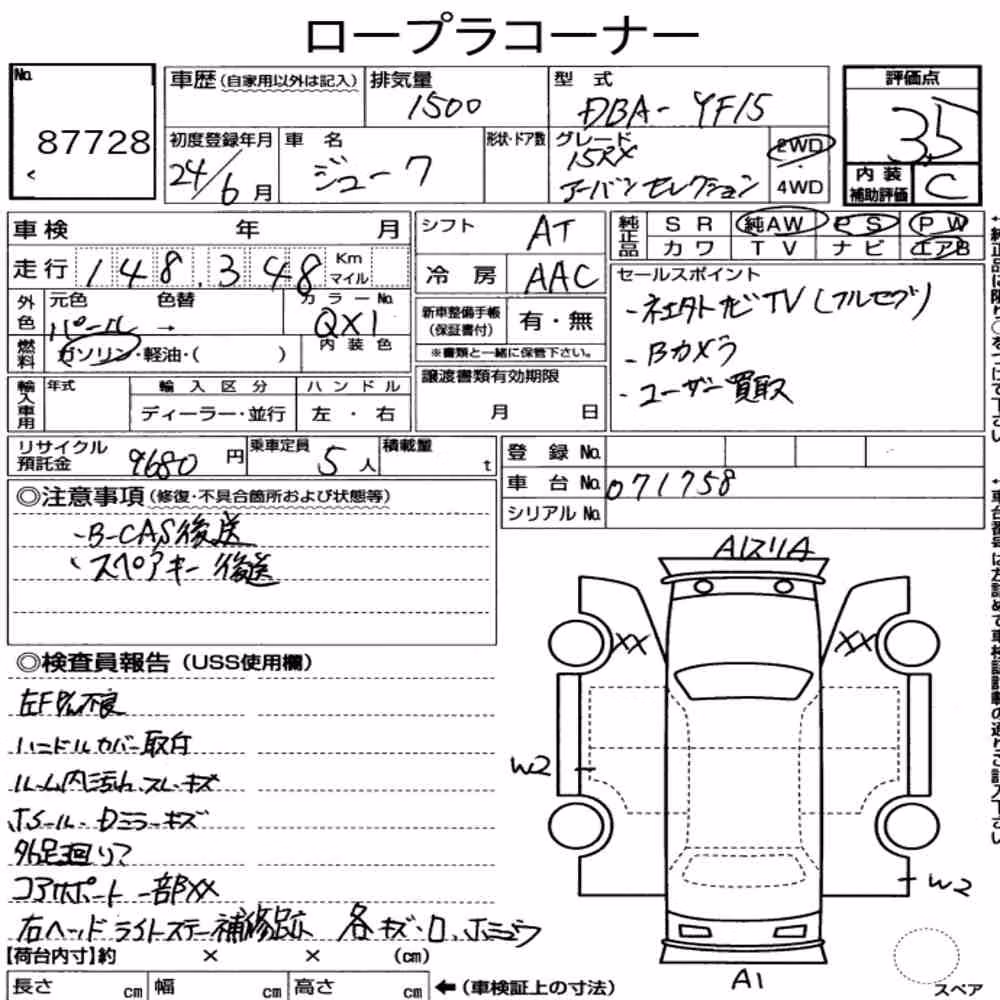 ロープラコーナー
No. 87728
車歴(自家用以外は記入)
排気量 1500
型式 DBA-YF15
評価点 3.5
初度登録年月 24/6月
車名 ジューク
形状・ドア数
グレード 15RX アーバンセレクション
2WD
4WD
内装補助評価 C
車検 年 月
シフト AT
純正品 SR 純AW PS PW
カワ TV ナビ エアB
走行 148,348 Km マイル
冷房 AAC
セールスポイント
・社外ナビTV(フルセグ)
・Bカメラ
・ユーザー買取
外色 元色 パール → 色替 カラーNo. QX1
新車整備手帳(保証書付) 有・無
※書類と一緒に保管下さい。
燃料 ガソリン・軽油・( ) 内装色
譲渡書類有効期限 月 日
輸入車用 年式 輸入区分 ハンドル
ディーラー・並行 左・右
リサイクル預託金 9680円 乗車定員 5人 積載量 t
登録No.
車台No. 071758
シリアルNo.
◎注意事項(修復・不具合箇所および状態等)
・B-CAS後送
・スペアキー後送
◎検査員報告(USS使用欄)
ハンドルカバー取付
ルーム内汚れ、スレ・キズ
ホイール・Dミラーキズ
外足廻リサ
コアサポート一部XX
右ヘッドライトステー補修跡 各キズ・
A1スリA
XX
XX
W2
W2
A1
スペア
【荷台内寸】約 × × (cm)
長さ cm 幅 cm 高さ cm ←(車検証上の寸法)